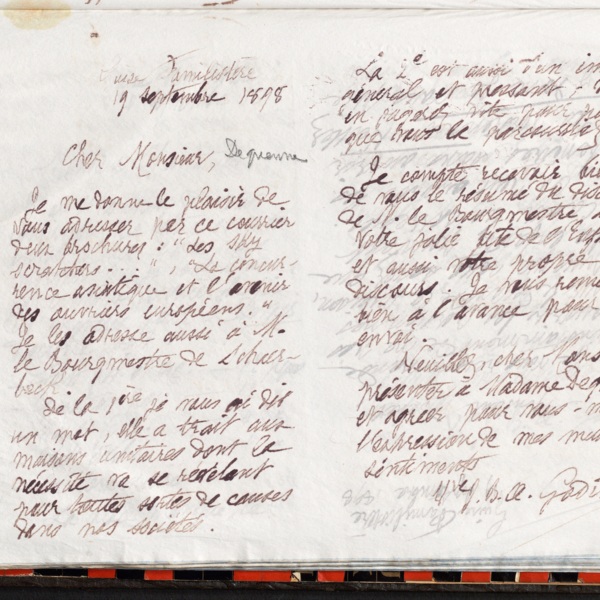 Guise Familistère
19 septembre 1898
Cher Monsieur, Dequenne
Je me donne le plaisir de
vous adresser par ce courrier
deux brochures : "Les sky
scratchers...", "La concur-
rence asiatique et l'avenir
des ouvriers européens."
Je les adresse aussi à M.
le Bourgmestre de Schaer-
beek.
De la 1ère je vous ai dit
un mot, elle a trait aux
maisons unitaires dont la
nécessité va se révélant
pour toutes sortes de causes
dans nos sociétés.
La 2e est aussi d'un in
général et pressant
vite pour
que vous le parcouriez
Je compte recevoir bie
de vous le résumé du disc
de M. le Bourgmestre,
votre jolie fête de l'Enf
et aussi votre propre
discours. Je vous reme
rcie à l'avance pour
envoi.
Veuillez, cher Mons
présenter à Madame Deq
et agréer pour vous-m
l'expression de mes mei
sentiments
Vve J. B. A. Godi